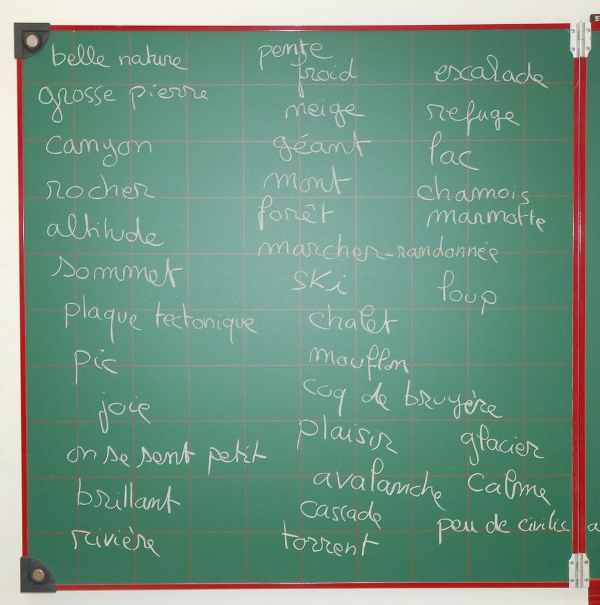 belle nature
grosse pierre
canyon
rocher
altitude
sommet
plaque tectonique
pic
joie
on se sent petit
brillant
rivière
pente
froid
neige
géant
mont
forêt
marcher-randonnée
ski
chalet
mouflon
coq de bruyère
plaisir
avalanche
cascade
torrent
escalade
refuge
lac
chamois
marmotte
loup
glacier
calme
peu de civilis a